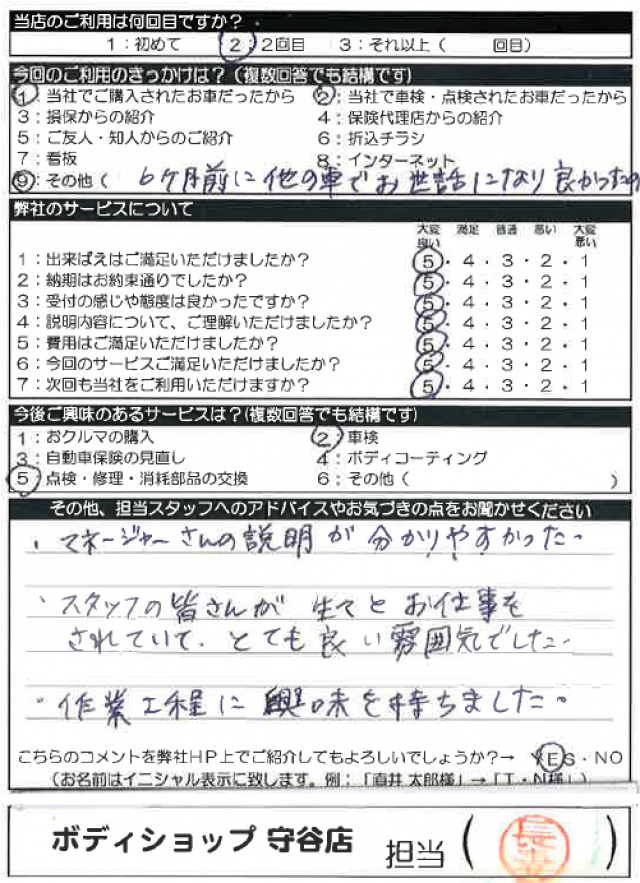 当店のご利用は何回目ですか？
1：初めて　2：2回目　3：それ以上（　　回目）
今回のご利用のきっかけは？（複数回答でも結構です）
1：当社でご購入されたお車だったから　2：当社で車検・点検されたお車だったから
3：損保からの紹介　4：保険代理店からの紹介
5：ご友人・知人からのご紹介　6：折込チラシ
7：看板　8：インターネット
9：その他（ 6ヶ月前に他の車でお世話になり良かったの
弊社のサービスについて
大変良い　満足　普通　悪い　大変悪い
1：出来ばえはご満足いただけましたか？　5・4・3・2・1
2：納期はお約束通りでしたか？　5・4・3・2・1
3：受付の感じや態度は良かったですか？　5・4・3・2・1
4：説明内容について、ご理解いただけましたか？　5・4・3・2・1
5：費用はご満足いただけましたか？　5・4・3・2・1
6：今回のサービスご満足いただけましたか？　5・4・3・2・1
7：次回も当社をご利用いただけますか？　5・4・3・2・1
今後ご興味のあるサービスは？（複数回答でも結構です）
1：おクルマの購入　2：車検
3：自動車保険の見直し　4：ボディコーティング
5：点検・修理・消耗部品の交換　6：その他（　　）
その他、担当スタッフへのアドバイスやお気づきの点をお聞かせください
・マネージャーさんの説明が分かりやすかった。
・スタッフの皆さんが 々とお仕事を
されていて、とても良い雰囲気でした。
・作業工程に興味を持ちました。
こちらのコメントを弊社HP上でご紹介してもよろしいでしょうか？→　YES・NO
（お名前はイニシャル表示に致します。例：「直井 太郎様」→「T・N様」）
ボディショップ 守谷店　担当（　）